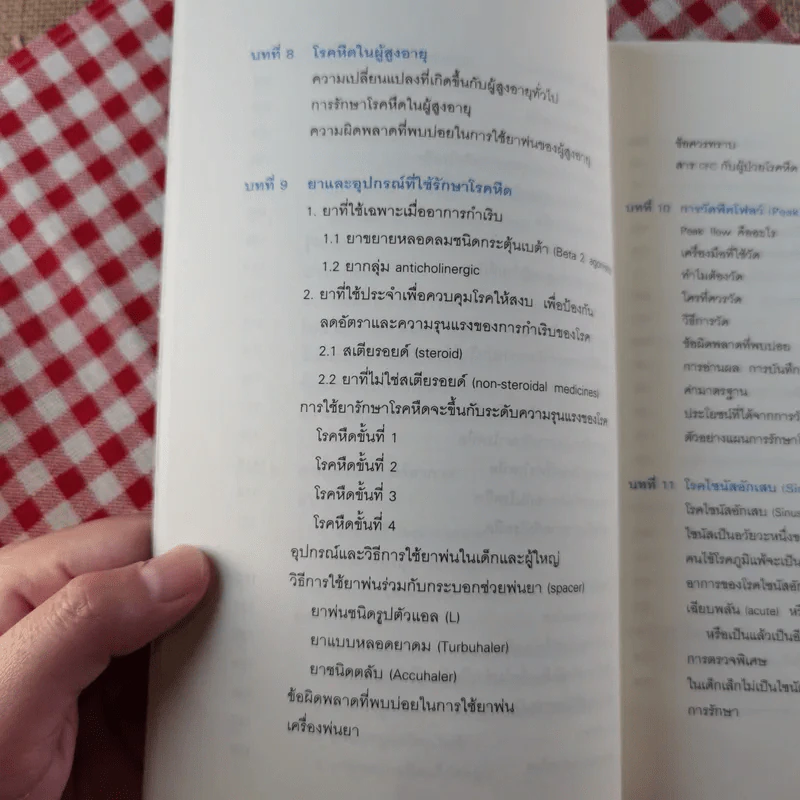 บทที่ 8 โรคหืดในผู้สูงอายุ
ความเปลี่ยนแปลงที่เกิดขึ้นกับผู้สูงอายุทั่วไป
การรักษาโรคหืดในผู้สูงอายุ
ความผิดพลาดที่พบบ่อยในการใช้ยาพ่นของผู้สูงอายุ
บทที่ 9 ยาและอุปกรณ์ที่ใช้รักษาโรคหืด
1. ยาที่ใช้เฉพาะเมื่ออาการกำเริบ
1.1 ยาขยายหลอดลมชนิดกระตุ้นเบต้า (Beta 2
1.2 ยากลุ่ม anticholinergic
2. ยาที่ใช้ประจำเพื่อควบคุมโรคให้สงบ เพื่อป้องกัน
ลดอัตราและความรุนแรงของการกำเริบของโรค
2.1 สเตียรอยด์ (steroid)
2.2 ยาที่ไม่ใช่สเตียรอยด์ (non-steroidal medicines)
การใช้ยารักษาโรคหืดจะขึ้นกับระดับความรุนแรงของโรค
โรคหืดขั้นที่ 1
โรคหืดขั้นที่ 2
โรคหืดขั้นที่ 3
โรคหืดขั้นที่ 4
อุปกรณ์และวิธีการใช้ยาพ่นในเด็กและผู้ใหญ่
วิธีการใช้ยาพ่นร่วมกับกระบอกช่วยพ่นยา (spacer)
ยาพ่นชนิดรูปตัวแอล (L)
ยาแบบหลอดยาดม (Turbuhaler)
ยาชนิดตลับ (Accuhaler)
ข้อผิดพลาดที่พบบ่อยในการใช้ยาพ่น
เครื่องพ่นยา
ข้อควรทราบ
สาร CFC กับผู้ป่วยโรคหืด
บทที่ 10 การวัดพีคโฟลว์ (Peak
Peak flow คืออะไร
เครื่องมือที่ใช้วัด
ทำไมต้องวัด
ใครที่ควรวัด
วิธีการวัด
ข้อผิดพลาดที่พบบ่อย
การอ่านผล การบันทึก
ค่ามาตรฐาน
ประโยชน์ที่ได้จากการวั
ตัวอย่างแผนการรักษา
บทที่ 11 โรคไซนัสอักเสบ (Sin
โรคไซนัสอักเสบ (Sinus
ไซนัสเป็นอวัยวะหนึ่งข
คนไข้โรคภูมิแพ้จะเป็น
อาการของโรคไซนัสอัก
เฉียบพลัน (acute) ห
หรือเป็นแล้วเป็นอี
การตรวจพิเศษ
ในเด็กเล็กไม่เป็นไซนั
การรักษา